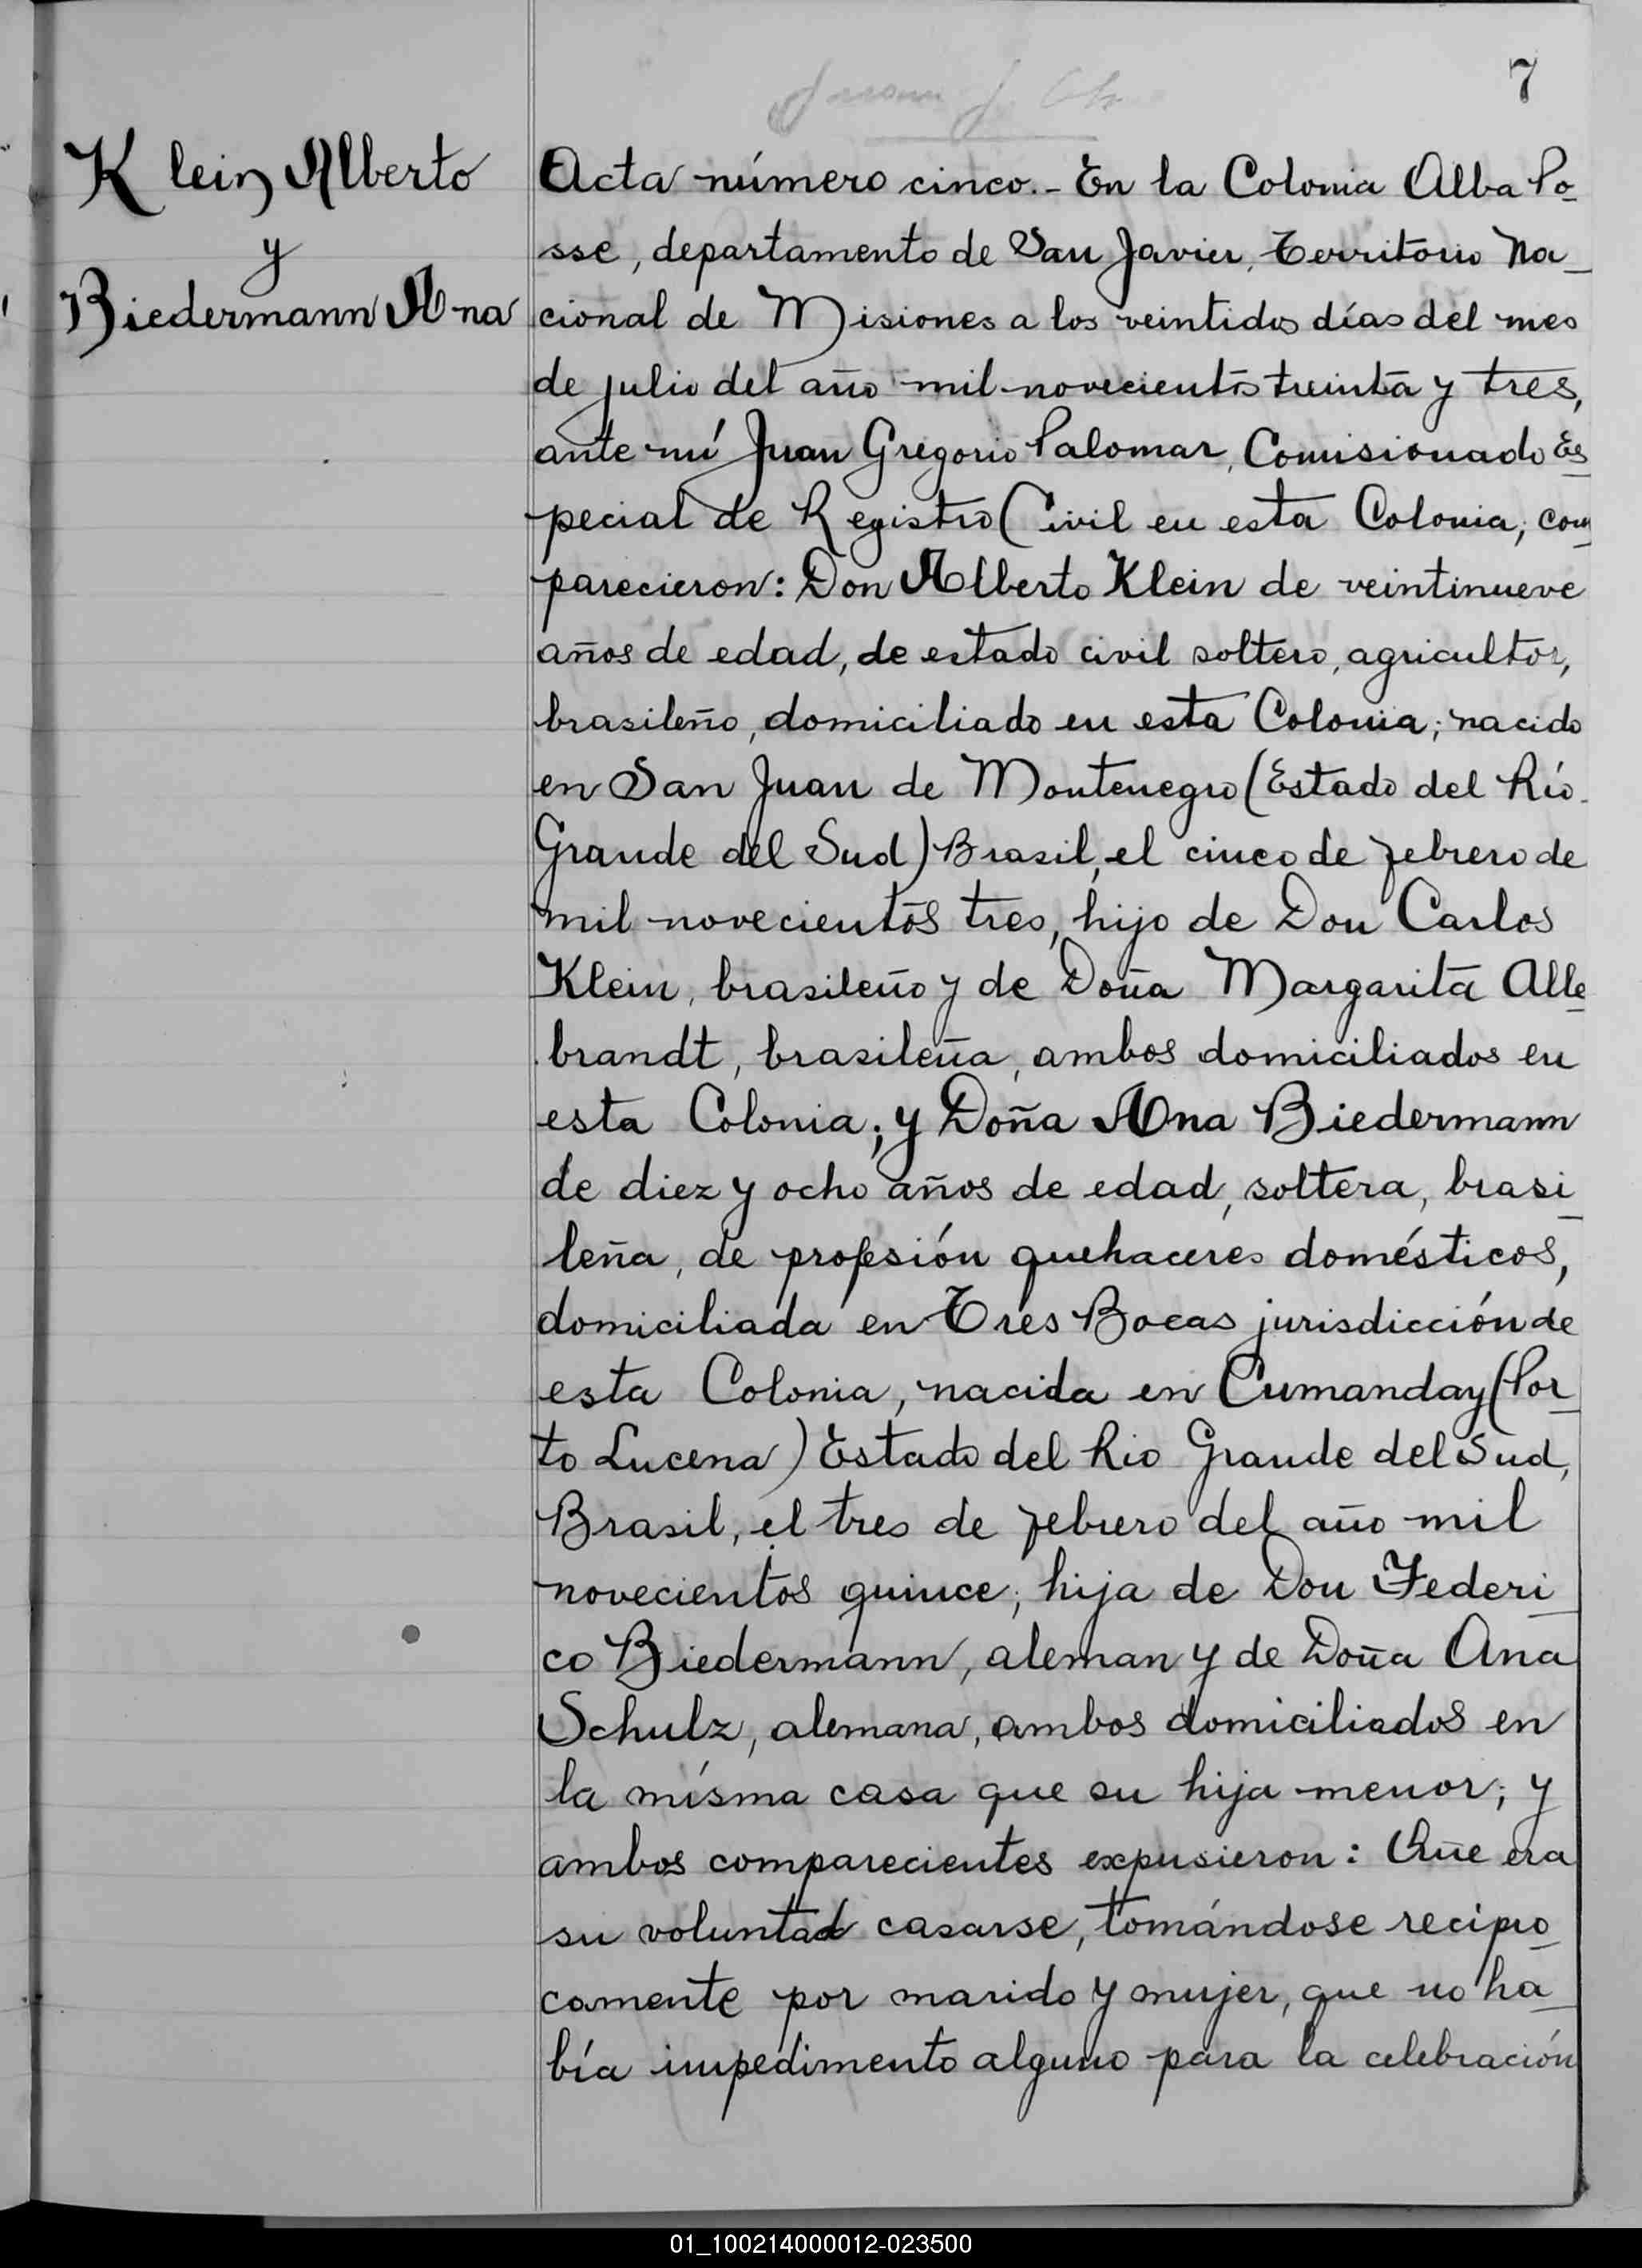 7
Klein Alberto
y
Biedermann Ana
Acta número cinco.- En la Colonia Alba Po-
sse, departamento de San Javier, Territorio Na-
cional de Misiones a los veintidos días del mes
de julio del año mil novecientos treinta y tres,
ante mí Juan Gregorio Palomar, Comisionado Es-
pecial de Registro Civil en esta Colonia; com-
parecieron: Don Alberto Klein de veintinueve
años de edad, de estado civil soltero, agricultor,
brasileño, domiciliado en esta Colonia; nacido
en San Juan de Montenegro (Estado del Río
Grande del Sud) Brasil, el cinco de febrero de
mil novecientos tres, hijo de Don Carlos
Klein, brasileño y de Doña Margarita Alle-
brandt, brasileña, ambos domiciliados en
esta Colonia; y Doña Ana Biedermann
de diez y ocho años de edad, soltera, brasi-
leña, de profesión quehaceres domésticos,
domiciliada en Tres Bocas jurisdicción de
esta Colonia, nacida en Cumanday (Por-
to Lucena) Estado del Rio Grande del Sud,
Brasil, el tres de febrero del año mil
novecientos quince; hija de Don Federi-
co Biedermann, aleman y de Doña Ana
Schulz, alemana, ambos domiciliados en
la misma casa que su hija menor; y
ambos comparecientes expusieron: Que era
su voluntad casarse, tomándose recipro-
camente por marido y mujer, que no ha-
bía impedimento alguno para la celebración
01_100214000012-023500